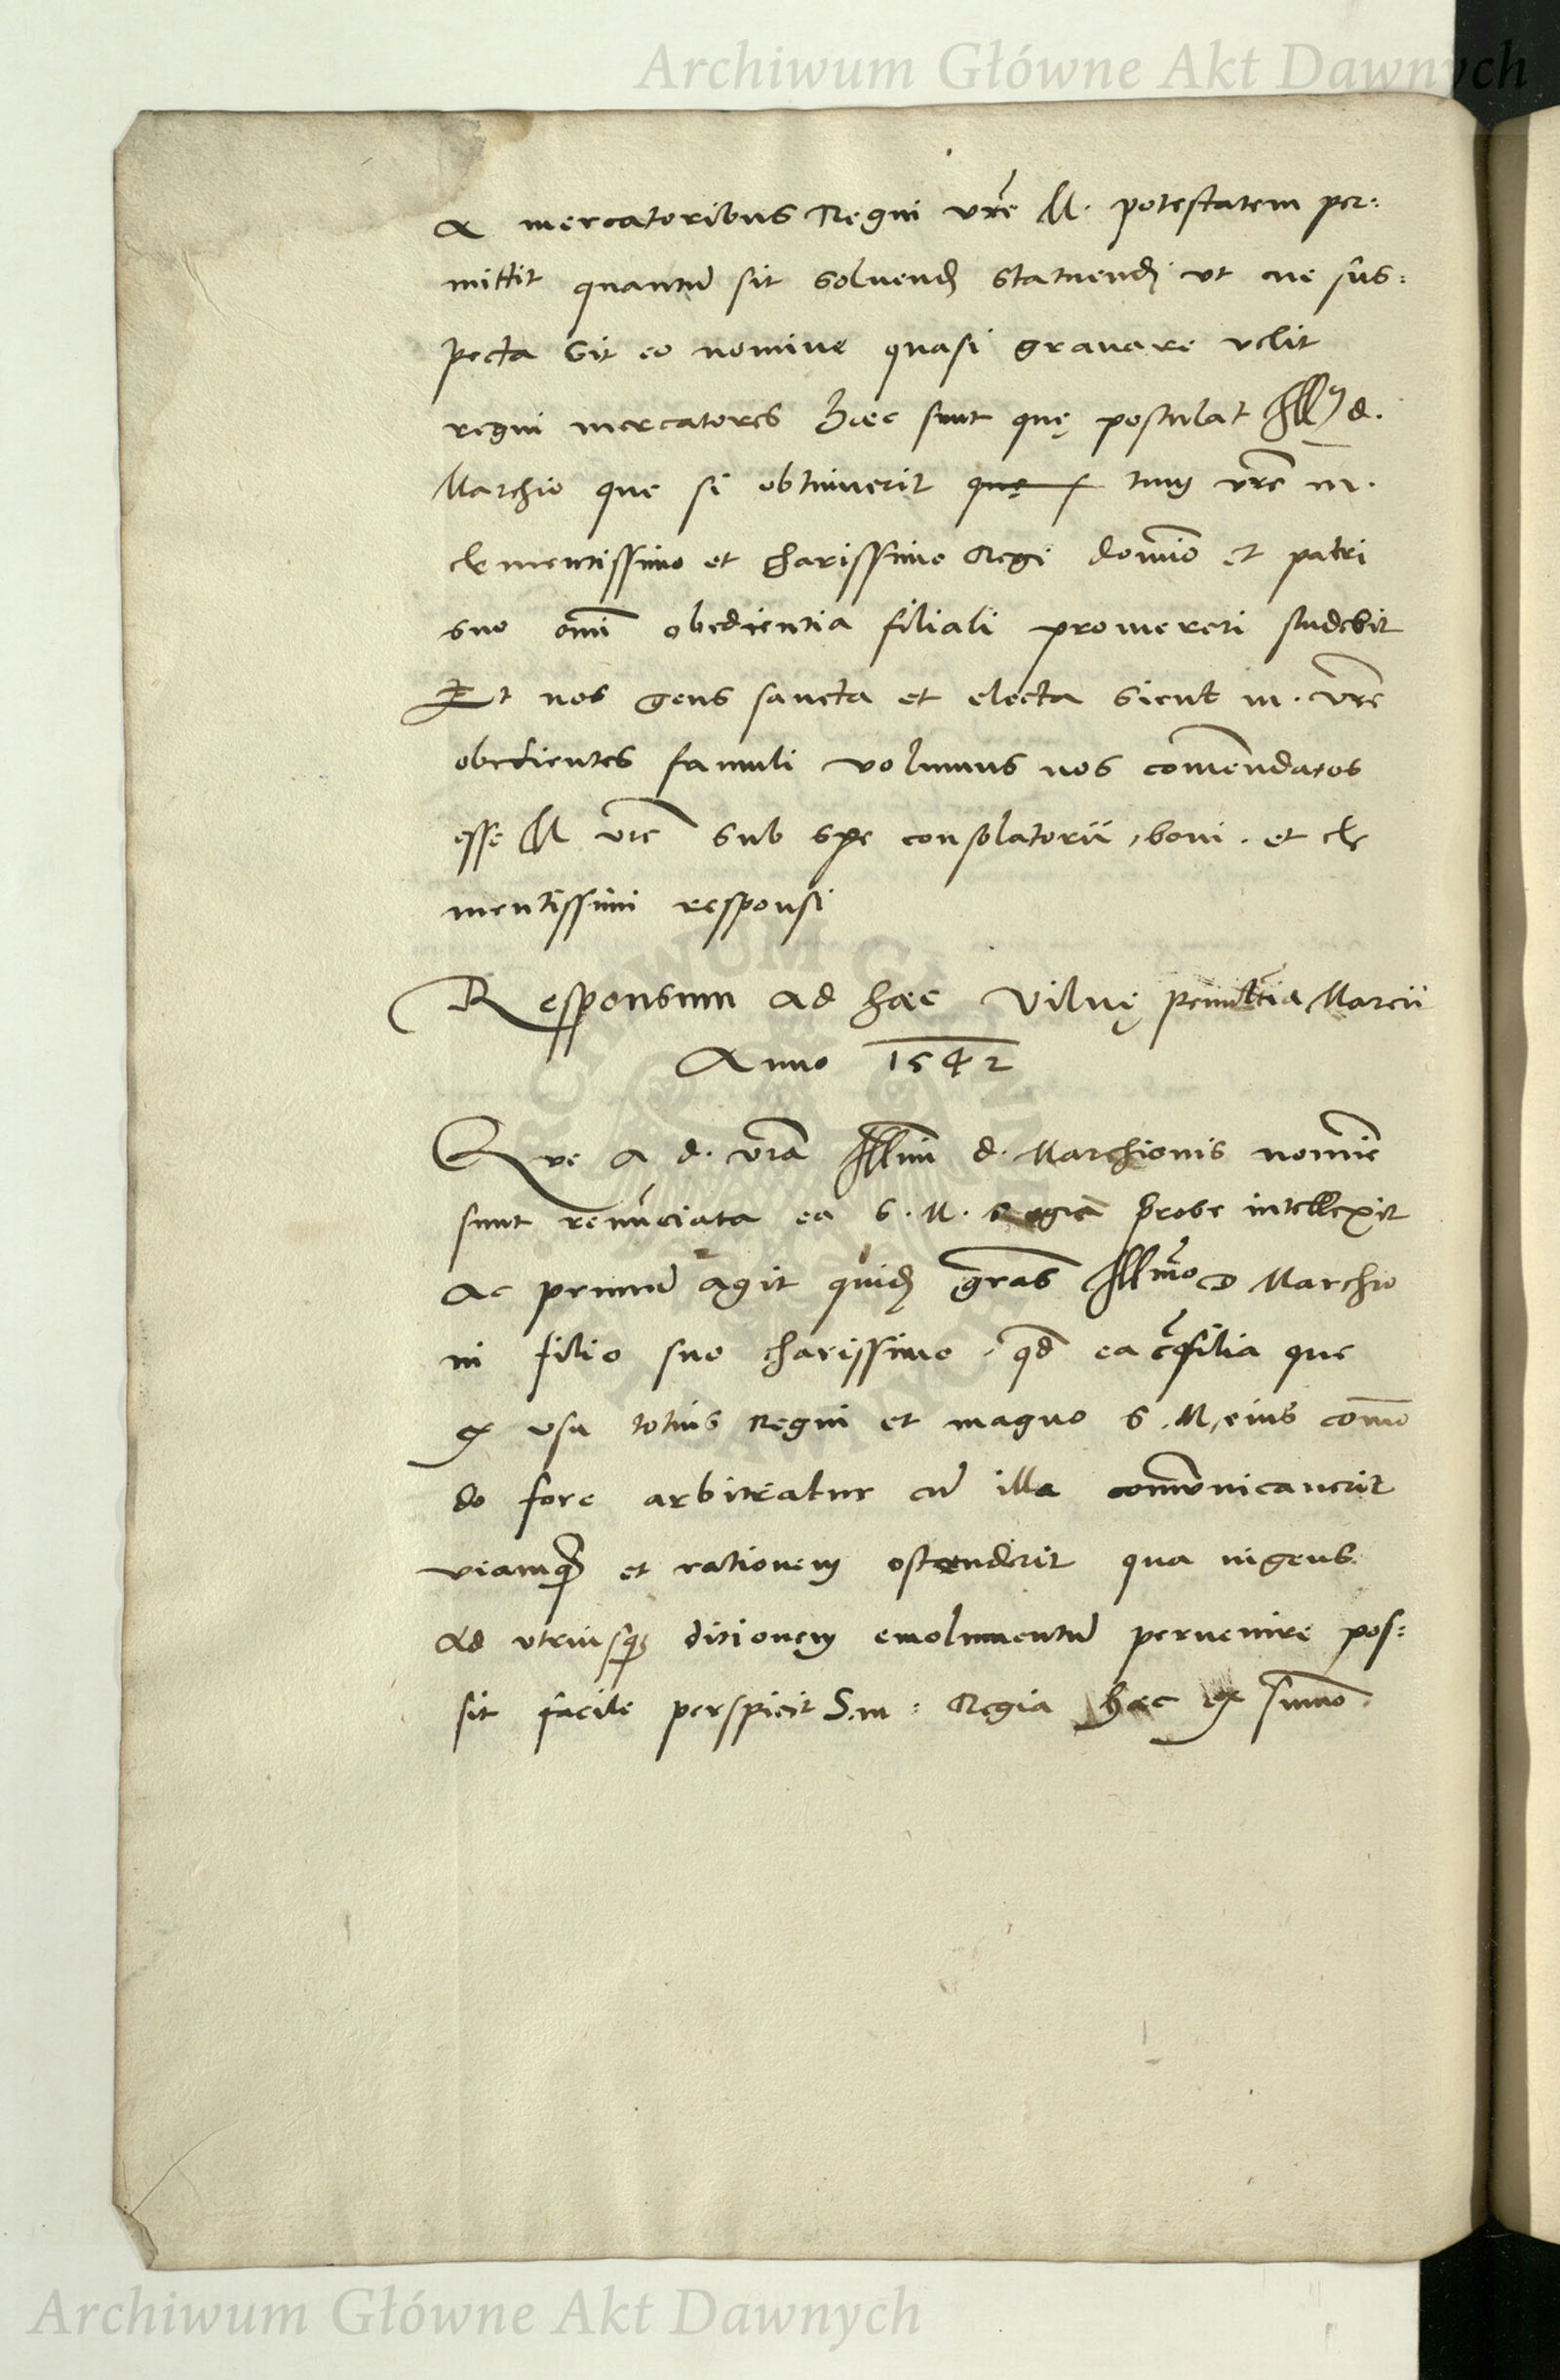 Archiwum Główne Akt Dawnych
a mercatoribus Regni vrẽ M. potestatem per:
mittit quantũ sit soluendj statuendj vt ne sus:
pecta sit eo nomine quasi grauare velit
regni mercatores Haec sunt quę postulat Ill d.
Marchio que si obtinuerit quę tum vrẽ m.
clementissimo et charissimo Regi domĩo et patri
suo omĩ obedientia filiali promereri studebit
Et nos gens sancta et electa sicut m. vrẽ
obedientes famuli volumus nos comẽndatos
esse M vrẽ sub spe consolatorii, boni. et cle
mentissimi responsi
Responsum ad haec Vilnę penultĩa Marcii
Anno 1542
Que a d. vrã Illmi d. Marchionis nomiẽ
sunt renũciata ea S. M. Regiã probe intellexit
Ac primũ agit quidẽ grãs Illmo D Marchio
ni filio suo charissimo, qđ ea cõsilia que
ex usu totius Regni et magno S. M. eius com̃o
do fore arbitratur cũ illa com̃unicauerit
viamq et rationem ostenderit qua ingens
ad vtriusq ditionem emolumentũ peruenire pos:
sit facile perspicit S. m: Regia haec ex sum̃o
Archiwum Główne Akt Dawnych